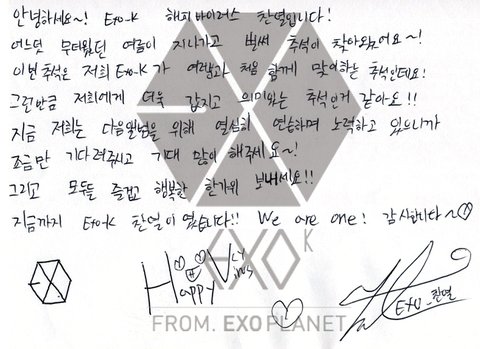 안녕하세요~! EXO-K 해피바이러스 찬열입니다!
어느덧 무더웠던 여름이 지나가고 벌써 추석이 찾아왔어요~!
이번 추석은 저희 EXO-K가 여러분과 처음 함께 맞이하는 추석인데요!
그런만큼 저희에게 더욱 값지고 의미있는 추석인거 같아요!!
지금 저희는 다음앨범을 위해 열심히 연습하며 노력하고 있으니까
조금만 기다려주시고 기대 많이 해주세요~!
그리고 모두들 즐겁고 행복한 한가위 보내세요!!
지금까지 EXO-K 찬열이였습니다!! We are one! 감사합니다~♡
EXO K
Happy Virus
EXO_찬열
FROM. EXOPLANET